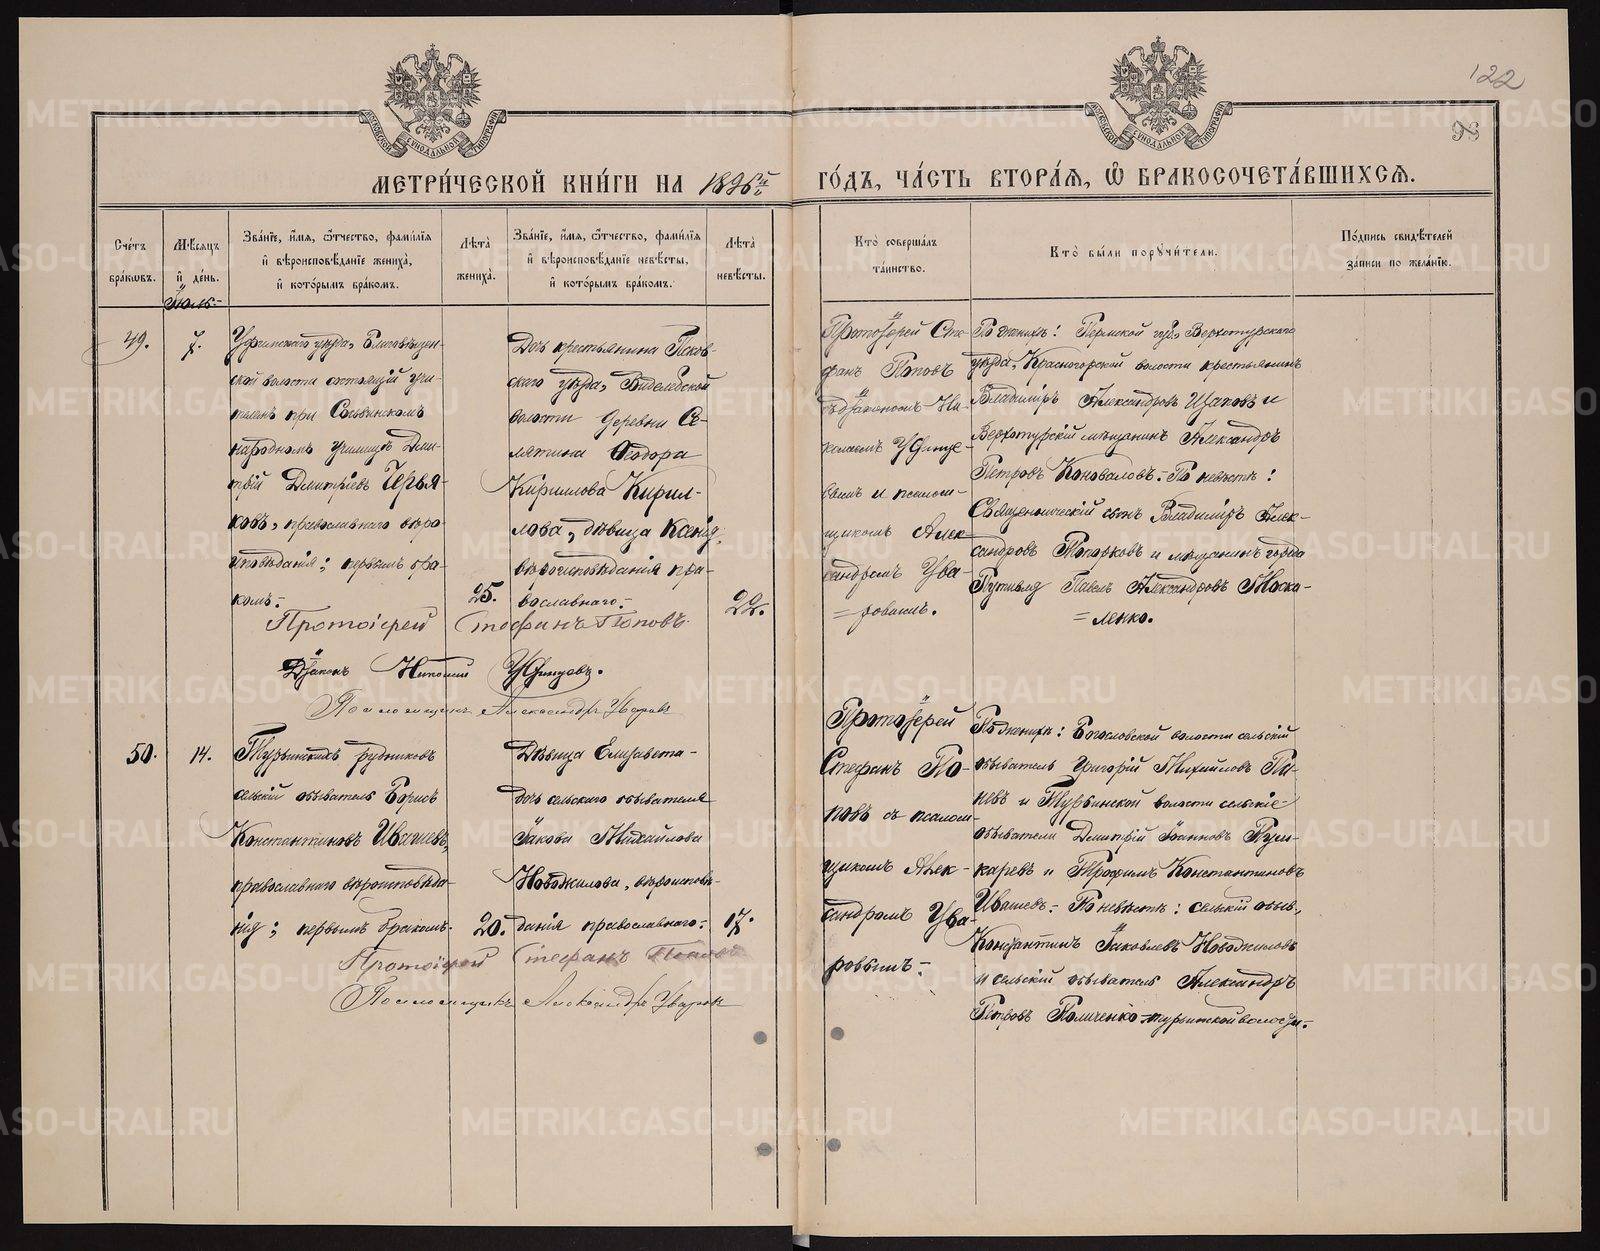 122
98
МЕТРИ́ЧЕСКОЙ КНИ́ГИ НА 1896й ГО́ДЪ, ЧА́СТЬ ВТОРА́Ѧ, Ѡ҆ БРАКОСОЧЕТА́ВШИХСѦ.
Сче́тъ бра́кѡвъ.
Мѣ́сѧцъ и҆ де́нь.
Зва́нїе, и҆́мѧ, ѻ҆́тчество, фами́лїѧ
и҆ вѣроисповѣ́данїе жениха̀,
и҆ кото́рымъ бра́комъ.
Лѣ́та жениха̀.
Зва́нїе, и҆́мѧ, ѻ҆́тчество, фами́лїѧ
и҆ вѣроисповѣ́данїе невѣ́сты,
и҆ кото́рымъ бра́комъ.
Лѣ́та невѣ́сты.
Кто̀ соверша́лъ
та́инство.
Кто̀ бы́ли порꙋчи́тели.
По́дпись свидѣ́телей
за́писи по жела́нїю.
Іюль:
49.
7.
Уфимскаго уѣзда, Благовѣщен-
ской волости состоящій учи-
телемъ при
народномъ училищѣ Дми-
трій Дмитріевъ Черья-
ковъ, православнаго вѣро-
исповѣданія; первымъ бра-
комъ.
25.
Дочь крестьянина Псков-
скаго уѣзда, Виделебской
волости деревни Се-
лятина Ѳеодора
Кириллова Кирил-
лова, дѣвица Ксенія,
вѣроисповѣданія пра-
вославнаго.
22.
Протоіерей Сте-
фанъ Поповъ
съ діакономъ Ни-
колаемъ Удинце-
вымъ и псалом-
щикомъ Алек-
сандромъ Ува-
ровымъ.
По женихѣ: Пермской губ., Верхотурскаго
уѣзда, Красногорской волости крестьянинъ
Владиміръ Александровъ и
Верхотурскій мѣщанинъ Александръ
Петровъ Коноваловъ. По невѣстѣ:
Священническій сынъ Владиміръ Алек-
сандровъ Топорковъ и мѣщанинъ города
Путивля Павелъ Александровъ Моска-
ленко.
Протоіерей Стефанъ Поповъ.
Діаконъ Николай Удинцевъ.
Псаломщикъ Александръ Уваровъ
50.
14.
Турьинскихъ рудниковъ
сельскій обыватель Борисъ
Константиновъ Ивашевъ,
православнаго вѣроисповѣда-
нія; первымъ бракомъ.
20.
Дѣвица Елизавета
дочь сельскаго обывателя
Іакова Михайлова
Новожилова, вѣроисповѣ-
данія православнаго.
17.
Протоіерей
Стефанъ По-
повъ съ псалом-
щикомъ Алек-
сандромъ Ува-
ровымъ.
По женихѣ: Богословской волости сельскій
обыватель Григорій Михайловъ Па-
невъ и Турьинской волости сельскіе
обыватели Дмитрій Іоанновъ Пуш-
каревъ и Трофимъ Константиновъ
Ивашевъ. По невѣстѣ: сельскій обыв.,
Константинъ Іаковлевъ Новожиловъ
и сельскій обыватель Александръ
Петровъ турьинской волости.
Протоіерей Стефанъ Поповъ
Псаломщикъ Александръ Уваровъ
METRIKI.GASO-URAL.RU